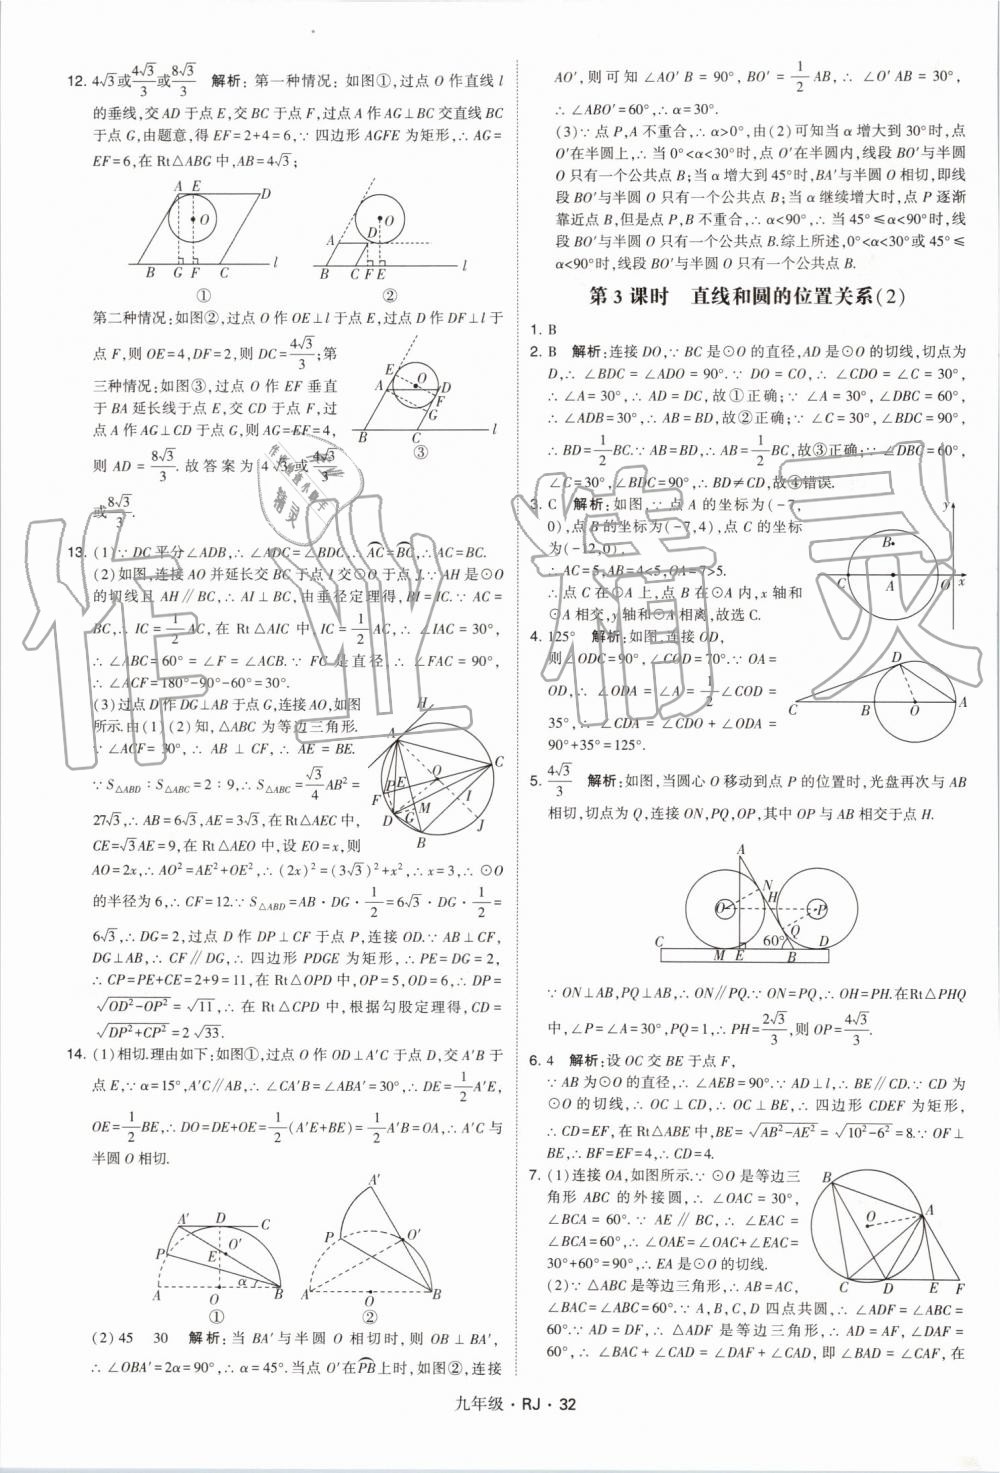 12. 4√3或4√3/3或8√3/3 解析:第一种情况:如图①,过点 O 作直线 l
的垂线,交 AD 于点 E,交 BC 于点 F,过点 A 作 AG⊥BC 交直线 BC
于点 G,由题意,得 EF=2+4=6,∵ 四边形 AGFE 为矩形,∴ AG=
EF=6,在 Rt△ABG 中,AB=4√3;
A E D
O
B G F C l
①
O
A D
B C F E l
②
第二种情况:如图②,过点 O 作 OE⊥l 于点 E,过点 D 作 DF⊥l 于
点 F,则 OE=4,DF=2,则 DC=4√3/3;第
三种情况:如图③,过点 O 作 EF 垂直
于 BA 延长线于点 E,交 CD 于点 F,过
点 A 作 AG⊥CD 于点 G,则 AG=EF=4,
则 AD=8√3/3.故答案为 4√3或4√3/3
或8√3/3.
E O
A D
F
G
B C l
③
13. (1)∵ DC 平分∠ADB,∴ ∠ADC=∠BDC,∴ AC=BC,∴ AC=BC.
(2)如图,连接 AO 并延长交 BC 于点 I 交⊙O 于点 J.∵ AH 是⊙O
的切线且 AH∥BC,∴ AI⊥BC,由垂径定理得,BI=IC.∵ AC=
BC,∴ IC=1/2AC,在 Rt△AIC 中,IC=1/2AC,∴ ∠IAC=30°,
∴ ∠ABC=60°=∠F=∠ACB.∵ FC 是直径,∴ ∠FAC=90°,
∴ ∠ACF=180°-90°-60°=30°.
(3)过点 D 作 DG⊥AB 于点 G,连接 AO,如图
所示.由(1)(2)知,△ABC 为等边三角形.
∵ ∠ACF=30°,∴ AB⊥CF,∴ AE=BE.
∵S△ABD:S△ABC=2:9,∴S△ABC=√3/4AB²=
27√3,∴ AB=6√3,AE=3√3,在 Rt△AEC 中,
CE=√3AE=9,在 Rt△AEO 中,设 EO=x,则
AO=2x,∴ AO²=AE²+OE²,∴ (2x)²=(3√3)²+x²,∴ x=3,∴ ⊙O
的半径为 6,∴ CF=12.∵ S△ABD=AB·DG·1/2=6√3·DG·1/2=
6√3,∴ DG=2,过点 D 作 DP⊥CF 于点 P,连接 OD.∵ AB⊥CF,
DG⊥AB,∴ CF∥DG,∴ 四边形 PDGE 为矩形,∴ PE=DG=2,
∴ CP=PE+CE=2+9=11,在 Rt△OPD 中,OP=5,OD=6,∴ DP=
√OD²-OP²=√11,∴ 在 Rt△CPD 中,根据勾股定理得,CD=
√DP²+CP²=2√33.
H
A
C
O
P E
F M I
D G J
B
14. (1)相切.理由如下:如图①,过点 O 作 OD⊥A′C 于点 D,交 A′B 于
点 E,∵ α=15°,A′C∥AB,∴ ∠CA′B=∠ABA′=30°,∴ DE=1/2A′E,
OE=1/2BE,∴ DO=DE+OE=1/2(A′E+BE)=1/2A′B=OA,∴ A′C 与
半圆 O 相切.
A′ D C
P E O′
α
A O B
①
A′
P O′
A O B
②
(2)45 30 解析:当 BA′与半圆 O 相切时,则 OB⊥BA′,
∴ ∠OBA′=2α=90°,∴ α=45°.当点 O′在PB上时,如图②,连接
AO′,则可知∠AO′B=90°,BO′=1/2AB,∴ ∠O′AB=30°,
∴ ∠ABO′=60°,∴ α=30°.
(3)∵点 P,A 不重合,∴ α>0°,由(2)可知当 α 增大到 30°时,点
O′在半圆上,∴ 当 0°<α<30°时,点 O′在半圆内,线段 BO′与半圆
O 只有一个公共点 B;当 α 增大到 45°时,BA′与半圆 O 相切,即线
段 BO′与半圆 O 只有一个公共点 B;当 α 继续增大时,点 P 逐渐
靠近点 B,但是点 P,B 不重合,∴ α<90°,∴ 当 45°≤α<90°时,线
段 BO′与半圆 O 只有一个公共点 B.综上所述,0°<α<30°或 45°≤
α<90°时,线段 BO′与半圆 O 只有一个公共点 B.
第 3 课时 直线和圆的位置关系(2)
1. B
2. B 解析:连接 DO,∵ BC 是⊙O 的直径,AD 是⊙O 的切线,切点为
D,∴ ∠BDC=∠ADO=90°.∵ DO=CO,∴ ∠CDO=∠C=30°,
∴ ∠A=30°,∴ AD=DC,故①正确;∵ ∠A=30°,∠DBC=60°,
∴ ∠ADB=30°,∴ AB=BD,故②正确;∵ ∠C=30°,∠BDC=90°,
∴ BD=1/2BC.∵ AB=BD,∴ AB=1/2BC,故③正确;∵ ∠DBC=60°,
∠C=30°,∠BDC=90°,∴ BD≠CD,故④错误.
3. C 解析:如图,∵ 点 A 的坐标为(-7,
0),点 B 的坐标为(-7,4),点 C 的坐标
为(-12,0),
∴ AC=5,AB=4<5,OA=7>5.
∴ 点 C 在⊙A 上,点 B 在⊙A 内,x 轴和
⊙A 相交,y 轴和⊙A 相离,故选 C.
y
B
C A O x
4. 125° 解析:如图,连接 OD,
则∠ODC=90°,∠COD=70°.∵ OA=
OD,∴ ∠ODA=∠A=1/2∠COD=
35°,∴ ∠CDA=∠CDO+∠ODA=
90°+35°=125°.
D
C B O A
5. 4√3/3 解析:如图,当圆心 O 移动到点 P 的位置时,光盘再次与 AB
相切,切点为 Q,连接 ON,PQ,OP,其中 OP 与 AB 相交于点 H.
A
N
O H P
Q
60°
C M E B D
∵ ON⊥AB,PQ⊥AB,∴ ON∥PQ.∵ ON=PQ,∴ OH=PH.在Rt△PHQ
中,∠P=∠A=30°,PQ=1,∴ PH=2√3/3,则 OP=4√3/3.
6. 4 解析:设 OC 交 BE 于点 F,
∵ AB 为⊙O 的直径,∴ ∠AEB=90°.∵ AD⊥l,∴ BE∥CD.∵ CD 为
⊙O 的切线,∴ OC⊥CD,∴ OC⊥BE,∴ 四边形 CDEF 为矩形,
∴ CD=EF,在 Rt△ABE 中,BE=√AB²-AE²=√10²-6²=8.∵ OF⊥
BE,∴ BF=EF=4,∴ CD=4.
7. (1)连接 OA,如图所示.∵ ⊙O 是等边三
角形 ABC 的外接圆,∴ ∠OAC=30°,
∠BCA=60°.∵ AE∥BC,∴ ∠EAC=
∠BCA=60°,∴ ∠OAE=∠OAC+∠EAC=
30°+60°=90°,∴ EA 是⊙O 的切线.
(2)∵ △ABC 是等边三角形,∴ AB=AC,
∠BAC=∠ABC=60°.∵ A,B,C,D 四点共圆,∴ ∠ADF=∠ABC=
60°.∵ AD=DF,∴ △ADF 是等边三角形,∴ AD=AF,∠DAF=
60°,∴ ∠BAC+∠CAD=∠DAF+∠CAD,即∠BAD=∠CAF,在
B
A
O
C D E F
九年级·RJ·32
作业精灵